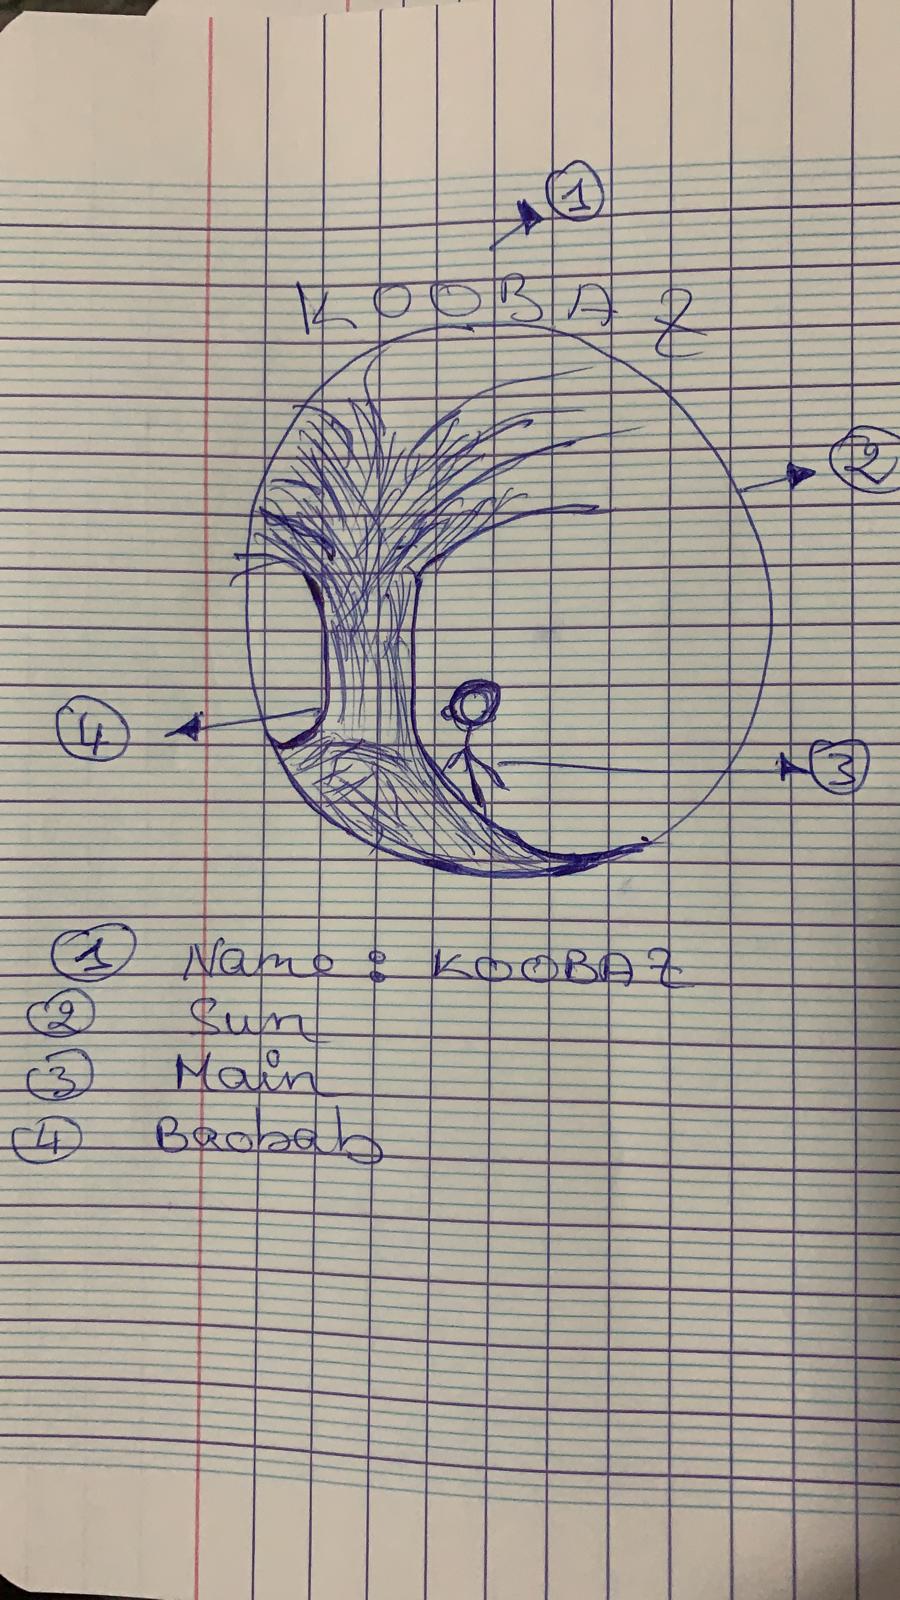 1
KOOBAZ
2
4
3
1 Name : KOOBAZ
2 Sun
3 Main
4 Baobab